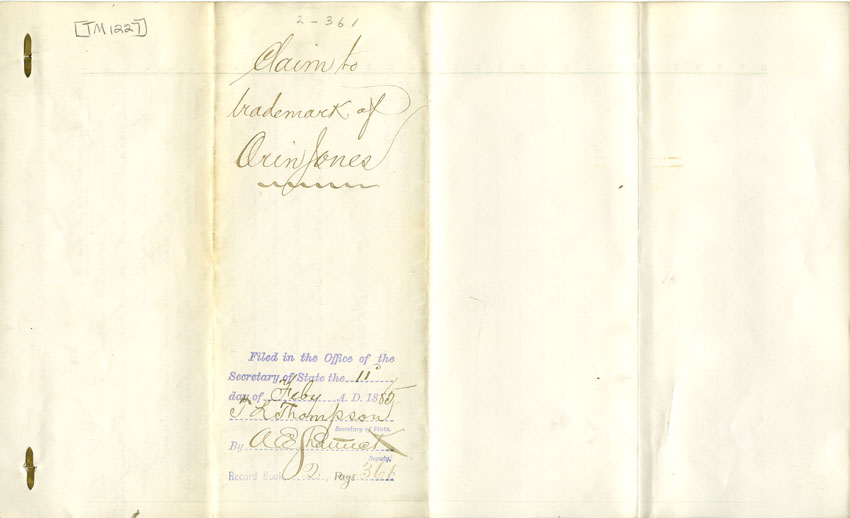 [TM1227]
2-361
Claim to
trademark of
Orin Jones
Filed in the Office of the
Secretary of State the 11
day of Feby A. D. 1885
T L Thompson
Secretary of State.
By A E
Deputy.
Record Book 2, Page 361